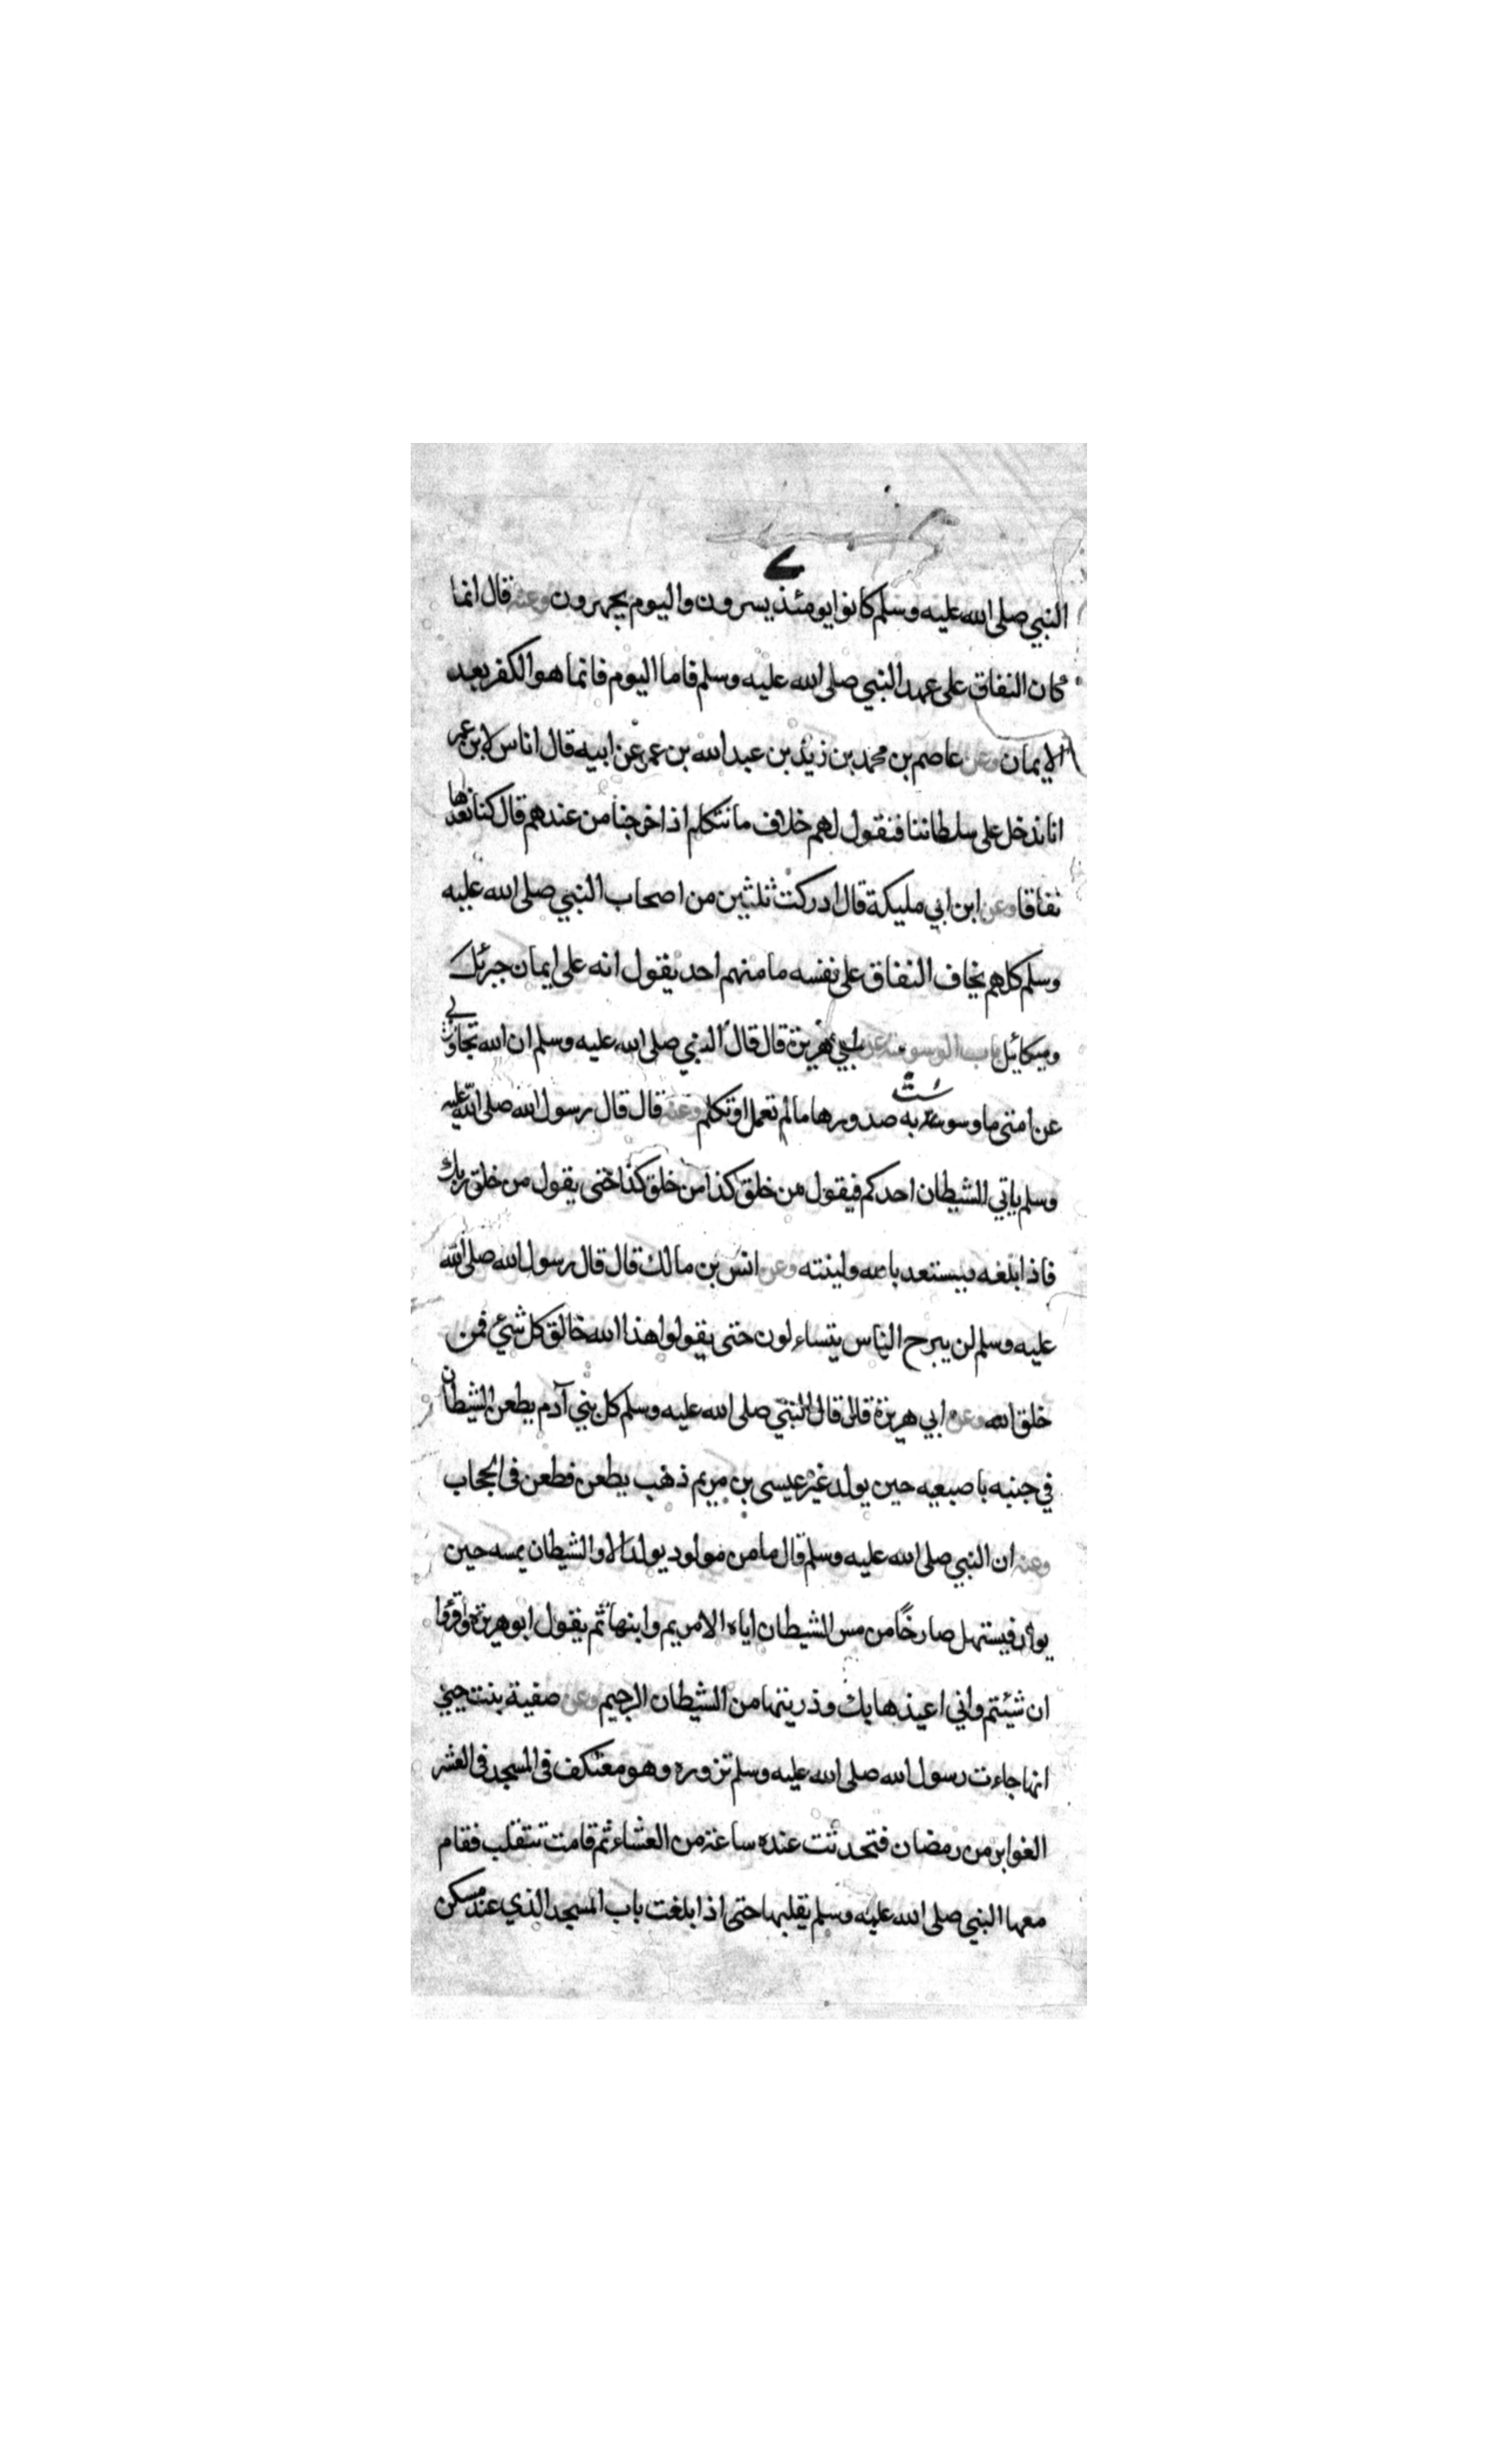 النبي صلى الله عليه وسلم كانوا يومئذ يسرون واليوم يجهرون وعنه قال انما
كان النفاق على عهد النبي صلى الله عليه وسلم فاما اليوم فانما هو الكفر بعد
الايمان وعن عاصم بن محمد بن زيد بن عبد الله بن عمر عن ابيه قال اناس لابن عمر
انا ندخل على سلطاننا فنقول لهم خلاف ما نتكلم اذا خرجنا من عندهم قال كنا نعدها
نفاقا وعن ابن ابي مليكة قال ادركت ثلثين من اصحاب النبي صلى الله عليه
وسلم كلهم يخاف النفاق على نفسه ما منهم احد يقول انه على ايمان جبرئيل
وميكائيل باب الوسوسة عن ابي هريرة قال قال النبي صلى الله عليه وسلم ان الله تجاوز لي
عن امتي ما وسوست به صدورها ما لم تعمل او تكلم وعنه قال قال رسول الله صلى الله عليه
وسلم ياتي الشيطان احدكم فيقول من خلق كذا من خلق كذا حتى يقول من خلق ربك
فاذا بلغه فيستعذ بالله ولينته وعن انس بن مالك قال قال رسول الله صلى الله
عليه وسلم لن يبرح الناس يتساءلون حتى يقولوا هذا الله خالق كل شئ فمن
خلق الله وعن ابي هريرة قال قال النبي صلى الله عليه وسلم كل بني آدم يطعن الشيطان
في جنبه باصبعيه حين يولد غير عيسى بن مريم ذهب يطعن فطعن فى الحجاب
وعنه ان النبي صلى الله عليه وسلم قال ما من مولود يولد الا والشيطان يمسه حين
يولد فيستهل صارخًا من مس الشيطان اياه الا مريم وابنها ثم يقول ابو هريرة واقرؤا
ان شئتم واني اعيذها بك وذريتها من الشيطان الرجيم وعن صفية بنت حيي
انها جاءت رسول الله صلى الله عليه وسلم تزوره وهو معتكف فى المسجد فى العشر
الغوابر من رمضان فتحدثت عنده ساعة من العشاء ثم قامت تنقلب فقام
معها النبي صلى الله عليه وسلم يقلبها حتى اذا بلغت باب المسجد الذي عند مسكن